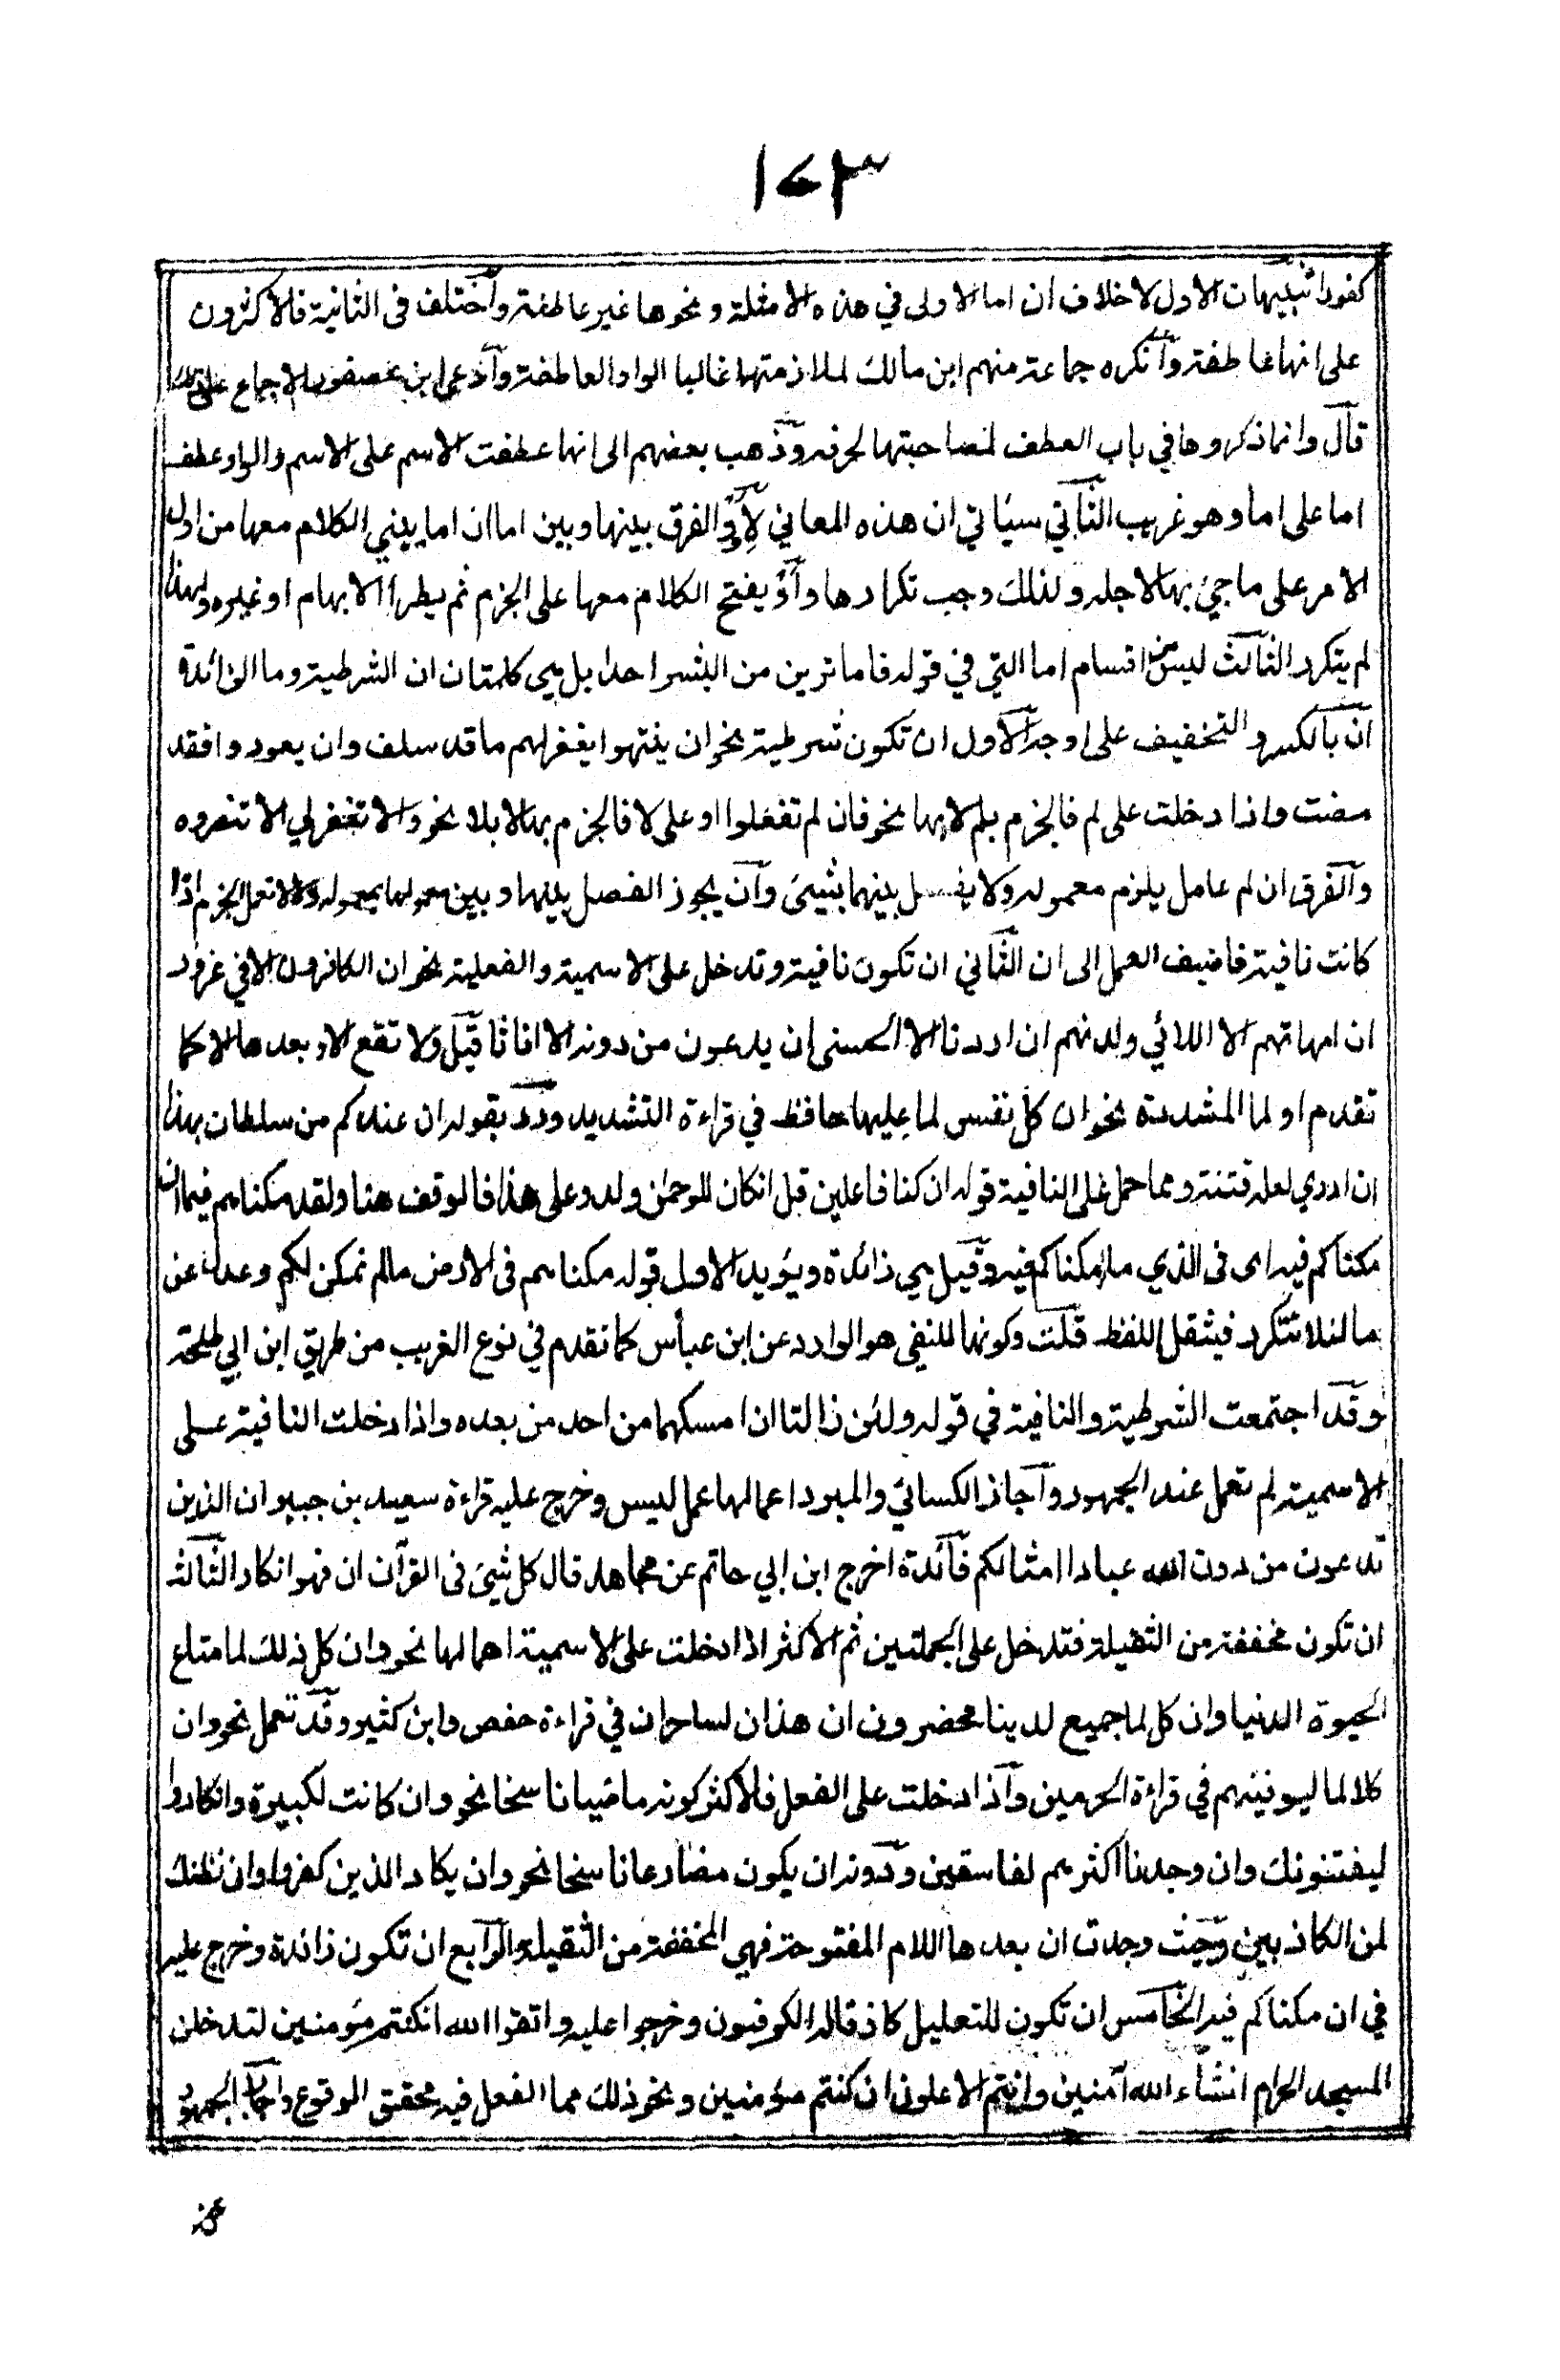 ١٤٣
كفورا تنبيهات الاول لا خلاف ان اما الاولى في هذه الامثلة ونحوها غير عاطفة وأختلف فى الثانية فالاكثرون
على انها عاطفة وآنكره جماعة منهم ابن مالك لملازمتها غالبا الواو العاطفة وآدعى ابن عصفور الاجماع على ذلك
قآل وانما ذكروها في باب العطف لمصاحبتها لحرفه وذهب بعضهم الى انها عطفت الاسم على الاسم والواو عطف
اما على اما وهو غريب الثاني سيأتي ان هذه المعاني لأو والفرق بينها وبين اما ان اما يبني الكلام معها من اول
الامر على ما جئ بها لاجله ولذلك وجب تكرارها وأو يفتح الكلام معها على الجزم ثم يطرأ الابهام او غيره ولهذا
لم يتكرر الثالث ليس من اقسام اما التي في قوله فاما ترين من البشر احدا بل هي كلمتان ان الشرطية وما الزائدة
ان بالكسر والتخفيف على اوجه الاول ان تكون شرطية نحو ان ينتهوا يغفر لهم ما قد سلف وان يعودوا فقد
مضت واذا دخلت على لم فالجزم بلم لا بها نحو فان لم تفعلوا او على لا فالجزم بها لا بلا نحو والا تغفر لي الا تنصروه
وآلفرق ان لم عامل يلزم معموله ولا يفصل بينهما بشيئ وآن يجوز الفصل بينها وبين معمولها بمعموله ولا لا تعمل الجزم اذا
كانت نافية فاضيف العمل الى ان الثاني ان تكون نافية وتدخل على الاسمية والفعلية نحو ان الكافرون الا في غرور
ان امهاتهم الا اللائي ولدنهم ان اردنا الا الحسنى إن يدعون من دونه الا اناثا قيل ولا تقع الا وبعدها الا كما
تقدم او لما المشددة نحو ان كل نفس لما عليها حافظ في قراءة التشديد ورد بقوله ان عندكم من سلطان بهذا
ان ادري لعله فتنة ومما حمل على النافية قوله ان كنا فاعلين قل انكان للرحمن ولد وعلى هذا فالوقف هنا ولقد مكناهم فيما ان
مكناكم فيه اى فى الذي ما مكناكم فيه وقيل هي زائدة ويؤيد الاول قوله مكناهم فى الارض ما لم نمكن لكم وعدل عن
ما لئلا تتكرر فيثقل اللفظ قلت وكونها للنفي هو الوارد عن ابن عباس كما تقدم في نوع الغريب من طريق ابن ابي طلحة
وقد اجتمعت الشرطية والنافية في قوله ولئن زالتا ان امسكهما من احد من بعده واذا دخلت النافية على
الاسمية لم تعمل عند الجمهور وآجاز الكسائي والمبرد اعمالها عمل ليس وخرج عليه قراءة سعيد بن جبير ان الذين
تدعون من دون الله عبادا امثالكم فآئدة اخرج ابن ابي حاتم عن مجاهد قال كل شيئ فى القرآن ان فهو انكار الثالث
ان تكون مخففة من الثقيلة فتدخل على الجملتين ثم الاكثر اذا دخلت على الاسمية اهمالها نحو وان كل ذلك لما متاع
الحيوة الدنيا وان كل لما جميع لدينا محضرون ان هذان لساحران في قراءة حفص وابن كثير وقد تعمل نحو وان
كلا لما ليوفينهم في قراءة الحرمين وآذا دخلت على الفعل فالاكثر كونه ماضيا ناسخا نحو وان كانت لكبيرة وان كادوا
ليفتنونك وان وجدنا اكثرهم لفاسقين ودونه ان يكون مضارعا ناسخا نحو وان يكاد الذين كفروا وان نظنك
لمن الكاذبين وحيث وجدت ان بعدها اللام المفتوحة فهي المخففة من الثقيلة والرابع ان تكون زائدة وخرج عليه
في ان مكناكم فيه الخامس ان تكون للتعليل كاذ قاله الكوفيون وخرجوا عليه واتقوا الله انكنتم مؤمنين لتدخلن
المسجد الحرام انشاء الله آمنين وانتم الاعلون ان كنتم مؤمنين ونحو ذلك مما الفعل فيه محقق الوقوع واجاب الجمهور
عن